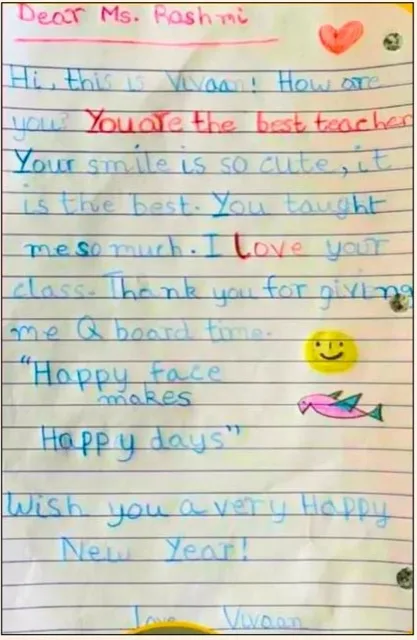 Dear Ms. Rashmi
Hi, this is Vivaan! How are
you? You are the best teacher
Your smile is so cute, it
is the best. You taught
me so much. I Love your
class. Thank you for giving
me Q board time.
"Happy face
makes
Happy days"
Wish you a very Happy
New Year!
Love Vivaan